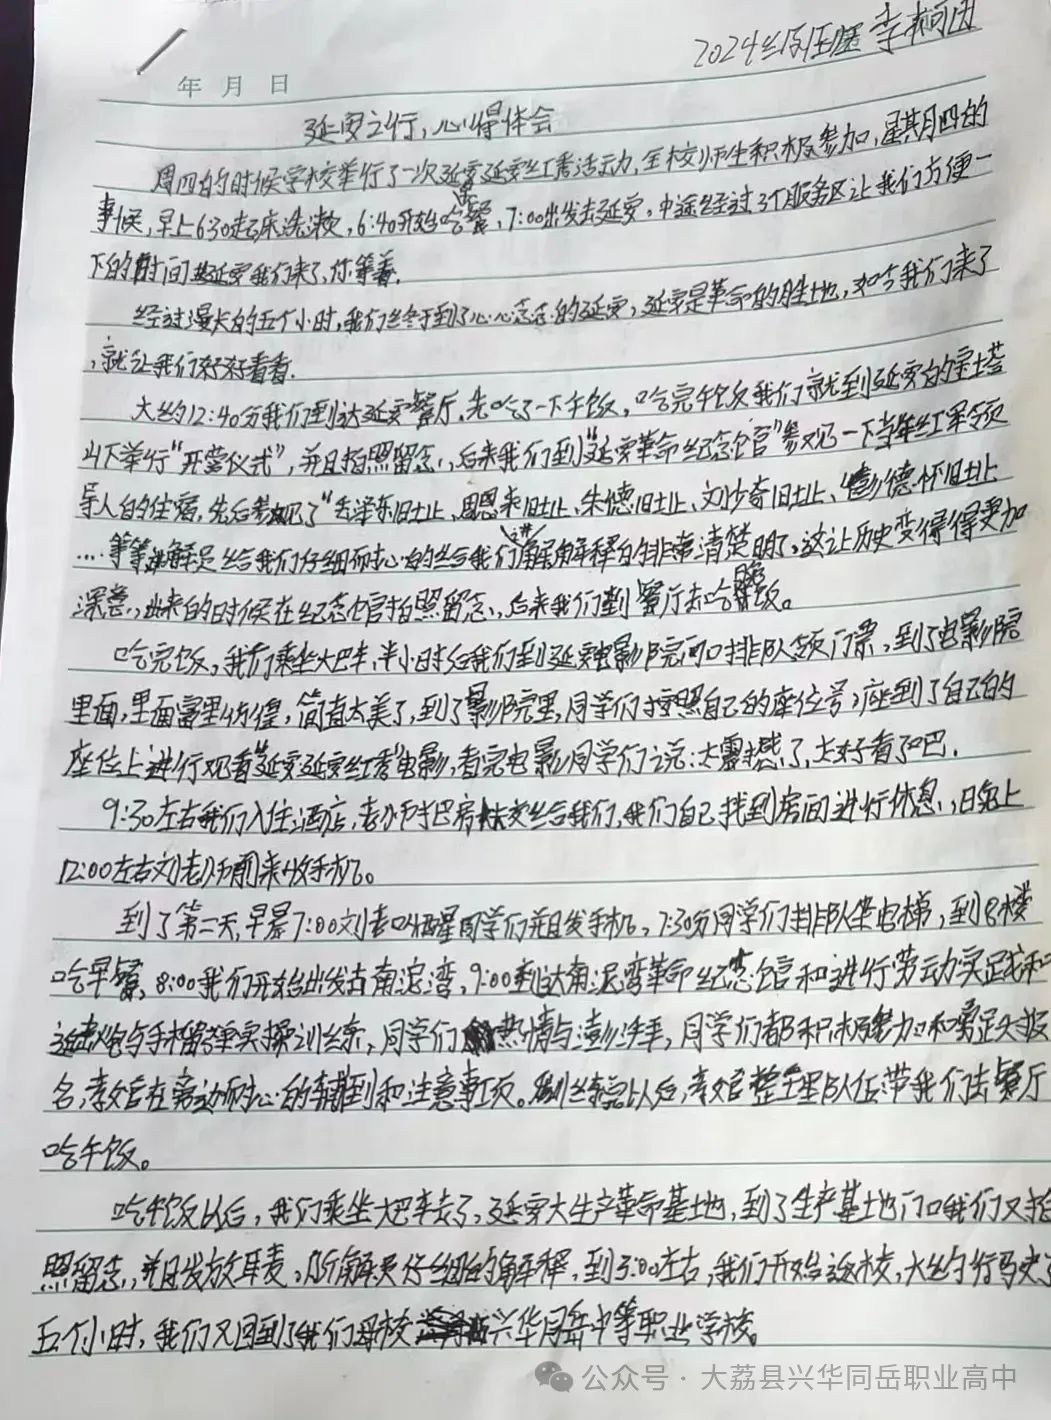 2024级医 李柯
年 月 日
延安之行,心得体会
周四的时候学校举行了一次延安延安红秀活动,全校师生积极参加,星期四的
事候,早上6:30起床洗漱,6:40开始吃早餐,7:00出发去延安,中途经过3个服务区让我们方便一
下的时间 延安我们来了,你等着.
经过漫长的五个小时,我们终于到了心心念念的延安,延安是革命的胜地,如今我们来了
,就让我们好好看看.
大约12:40分我们到达延安餐厅,先吃了一下午饭,吃完午饭我们就到延安的宝塔
山下举行"开营仪式",并且拍照留念,后来我们到"延安革命纪念馆"参观一下当年红军领
导人的住宿,先后参观了"毛泽东旧址、周恩来旧址、朱德旧址、刘少奇旧址、彭德怀旧址
....等等 讲解员给我们仔细而耐心的给我们讲解解释的非常清楚明了,这让历史变得得更加
深意,出来的时候在纪念馆拍照留念,后来我们到餐厅去吃晚饭。
吃完饭,我们乘坐大巴车,半小时后我们到延安电影院门口排队领门票,到了电影院
里面,里面富里仿徨,简直太美了,到了影院里,同学们按照自己的座位号,座到了自己的
座位上进行观看"延安延安红秀"电影,看完电影同学们说:太震撼了,太好看了吧.
9:30左右我们入住酒店,老师把房卡交给我们,我们自己找到房间进行休息,晚上
12:00左右刘老师前来收手机。
到了第二天,早晨7:00刘老叫醒同学们并且发手机,7:30分同学们排队坐电梯,到8楼
吃早餐,8:00我们开始出发去南泥湾,9:00到达南泥湾革命纪念馆和进行劳动实践和
迫击炮与手榴弹实操训练,同学们热情与澎湃,同学们都积极参加和勇足头报
名,教官在旁边耐心的辅到和注意事项。训练完以后,教官整理队伍带我们去餐厅
吃午饭。
吃午饭以后,我们乘坐大巴车去了,延安大生产革命基地,到了生产基地门口我们又拍
照留念,并且发放耳麦,所解更仔细的解释,到3:00左右,我们开始返校,大约行驶了
五个小时,我们又回到了我们母校 兴华同岳中等职业学校。
公众号 · 大荔县兴华同岳职业高中